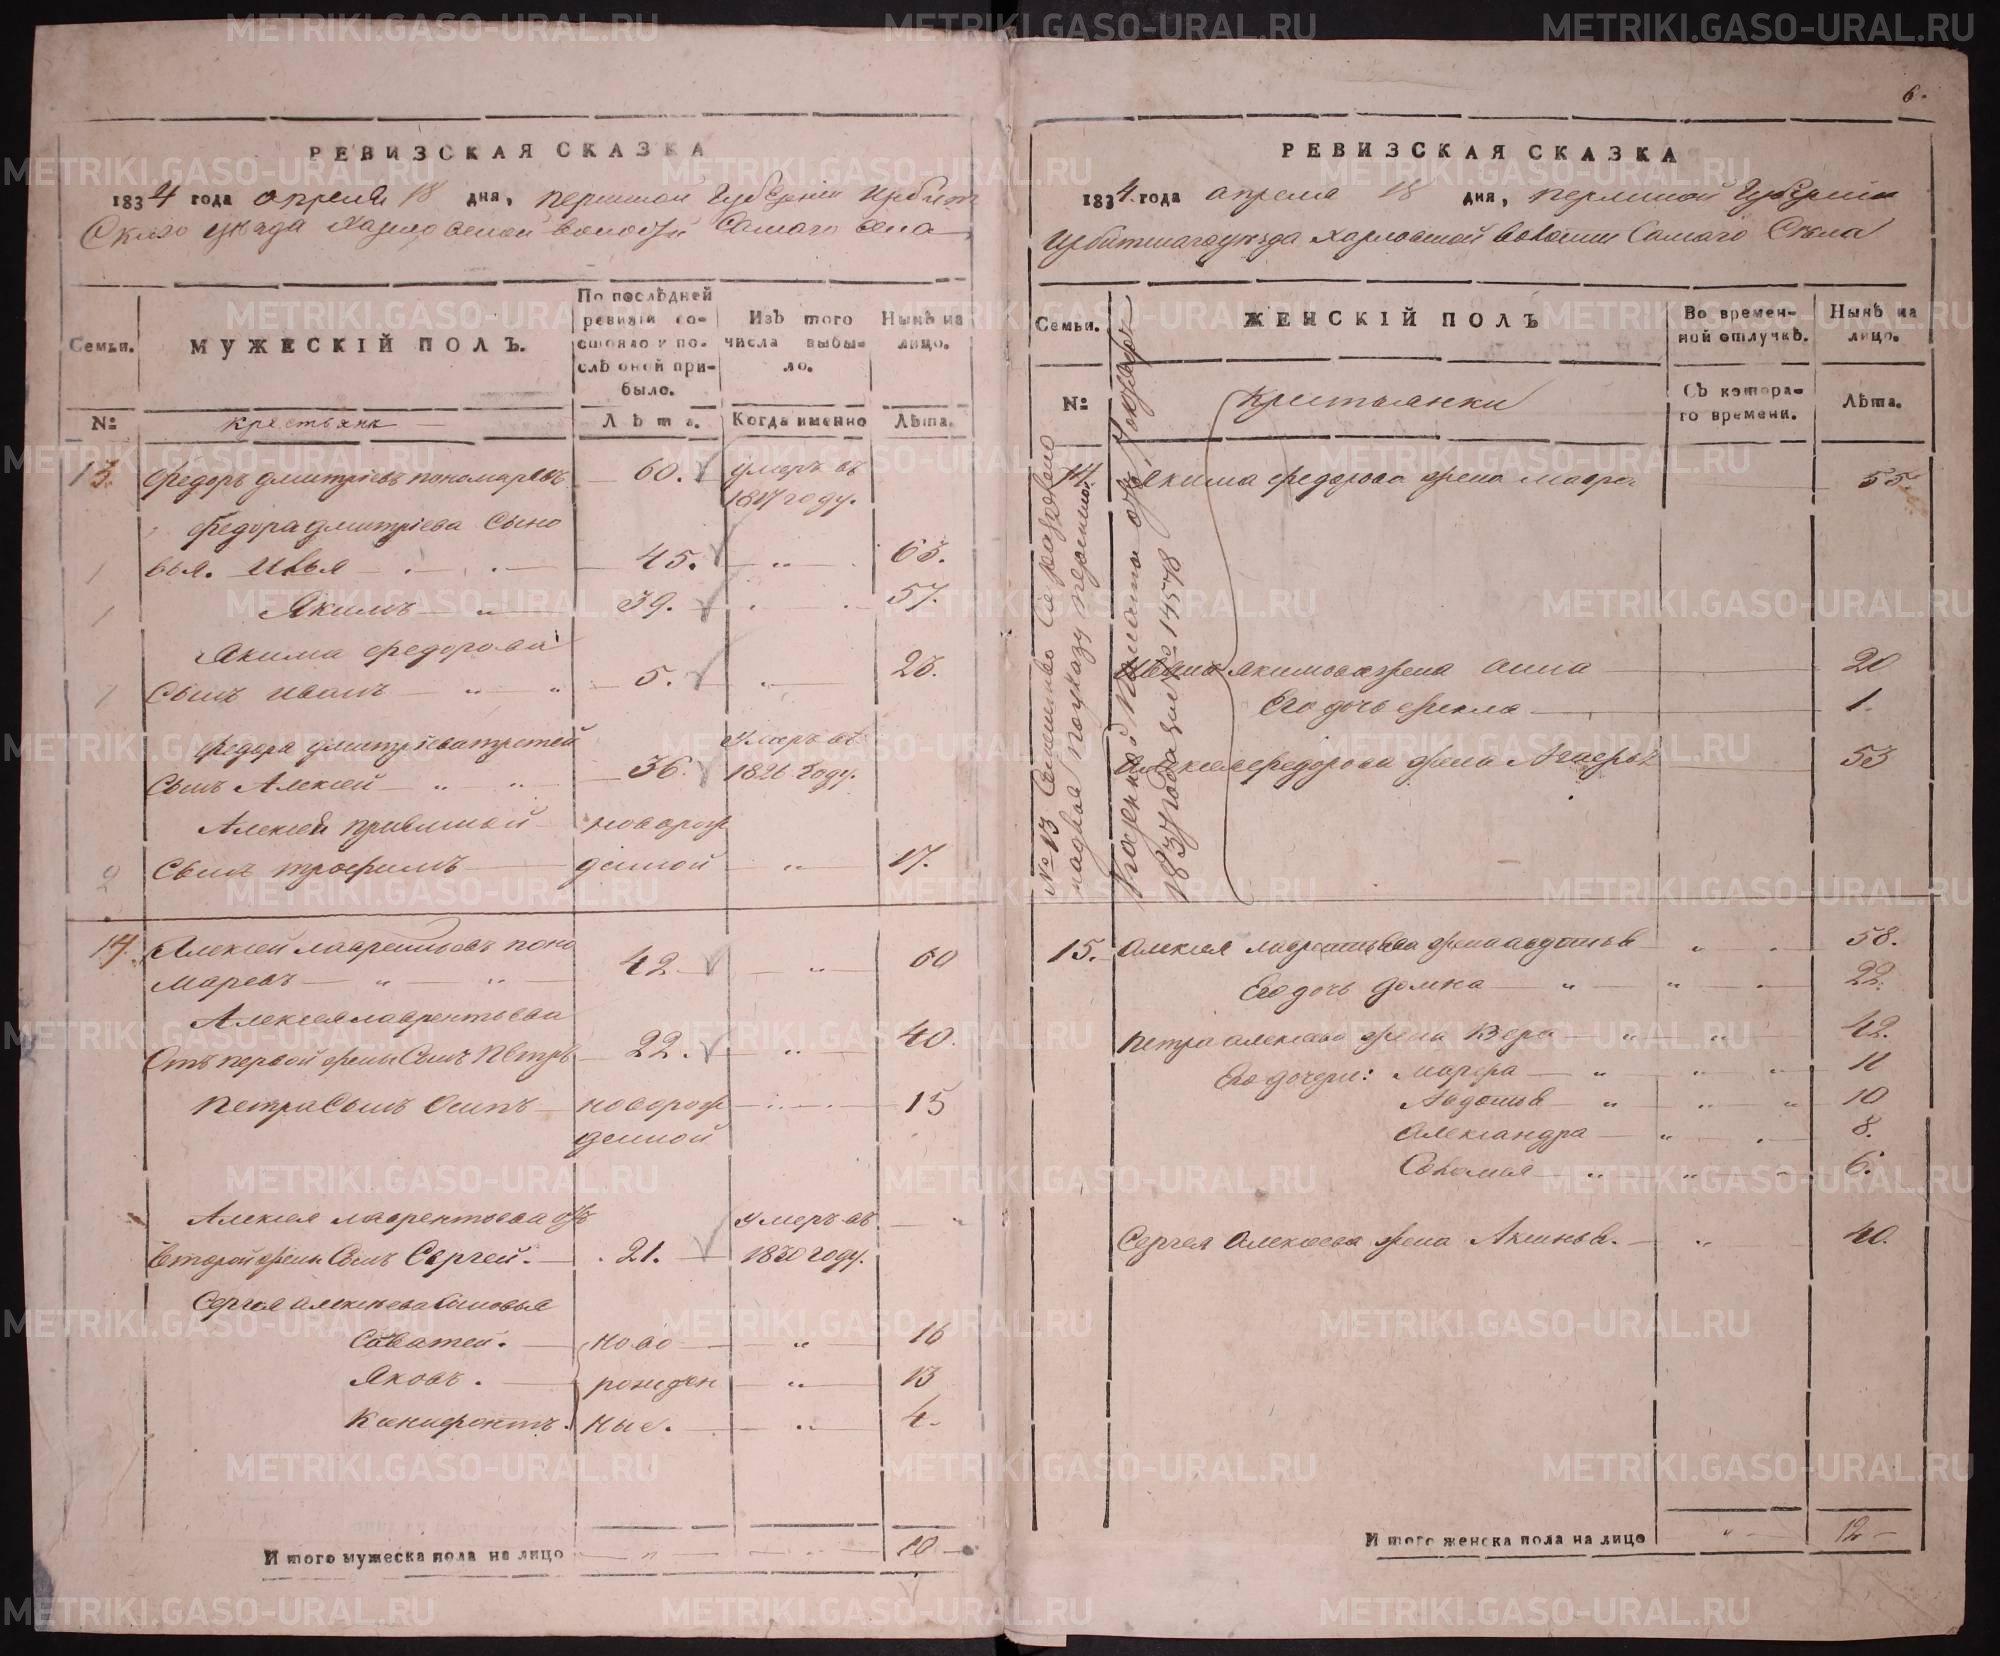 6.
РЕВИЗСКАЯ СКАЗКА
1834 года апреля 18 дня, пермской Губернии Ирбит
Скаго уезда Харловской волости Самаго Села
Семьи.
МУЖЕСКІЙ ПОЛЪ.
По послѣдней ревизіи состояло и послѣ оной прибыло.
Изъ того числа выбыло.
Нынѣ на лицо.
№
крестьяня
Лѣта.
Когда именно
Лѣта.
13. Федоръ дмитріевъ пономаревъ 60. умеръ въ
1817 году.
Федора дмитріева Сыно
вья. Илья 45. 63.
Якимъ 39. 57.
Якима федорова
Сынъ иванъ 5. 23.
Федора дмитріева третей умеръ въ
Сынъ Алексей 36. 1826 году.
Алексей приемной новорож
Сынъ трофимъ денной 17.
14. Алексей лаврентьевъ поно
маревъ 42. 60
Алексея лаврентьева
Отъ первой жены Сынъ Петръ 22. 40.
Петра Сынъ Осипъ новорож 15
денной
Алексея лаврентьева отъ умеръ въ
второй жены Сынъ Сергей. 21. 1830 году.
Сергея алексеева Сыновья
Саватей. ново 16
Яковъ. рожден 13
Ксенифонтъ. ные. 4.
Итого мужеска пола на лицо 10
РЕВИЗСКАЯ СКАЗКА
1834 года апреля 18 дня, пермской Губернии
Ирбитскаго уезда Харловской волости Самаго Села
Семьи.
ЖЕНСКІЙ ПОЛЪ
Во временной отлучкѣ.
Нынѣ на лицо.
№
Крестьянки
Съ котораго времени.
Лѣта.
14. Якима федорова жена мавра 55.
Ивана якимова жена анна 20
Его дочь фекла 1.
алексея федорова жена Агафья 53
№ 13 Семейство Сіе разделено
на двое по указу пермской
Казенной Палаты отъ
1837 года за № 14578
15. Алексея лаврентьева жена авдотья 58.
Его дочь домна 22.
Петра алексеева жена Вера 42.
Его дочери: марфа 11
Авдотья 10
александра 8.
Соломея 6.
Сергея алексеева жена Акинья. 40.
Итого женска пола на лицо 12
METRIKI.GASO-URAL.RU